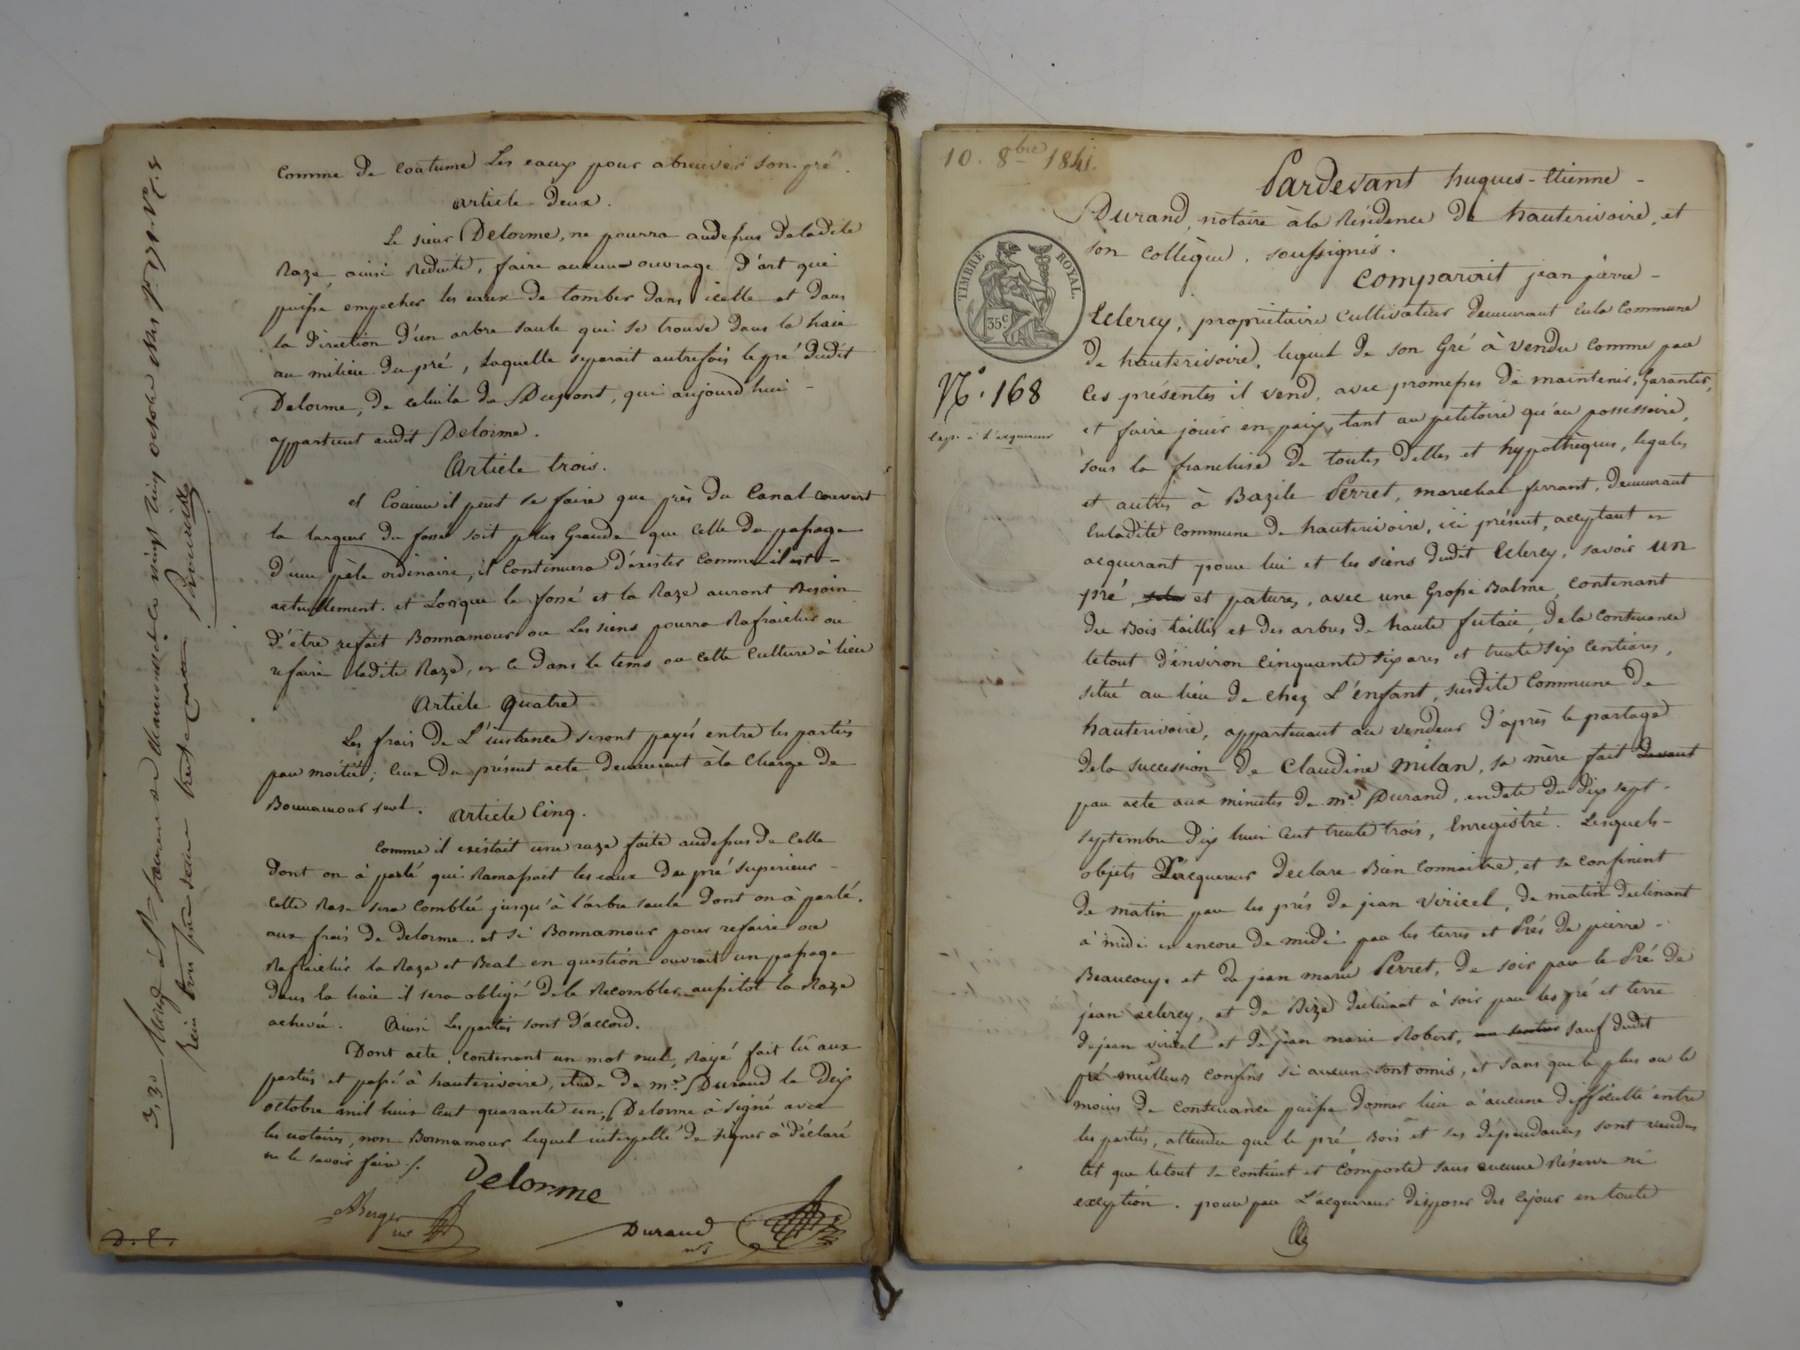 comme de coutume Les eaux pour abreuver son pré.
article deux.
Le sieur Delorme, ne pourra audessus de ladite
Raze ainsi Reduite, faire aucun ouvrage d'art qui
puisse empecher les eaux de tomber dans icelle et dans
la direction d'un arbre saule qui se trouve dans la haie
au milieu du pré, Laquelle separait autrefois le pré dudit
Delorme, de celui la de Dupont, qui aujourd'hui -
appartient audit Delorme.
Article trois.
et Comme il peut se faire que près du Canal couvert
la largeur du fossé soit plus Grande que celle du passage
d'une pèle ordinaire, il Continuera d'exister Comme il est -
actuellement. et Lorsque le fossé et la Raze auront Besoin
d'être refait Bonnamour ou Les siens pourra Rafraichir ou
refaire ladite Raze, et ce dans le tems ou cette Culture à lieu
Article quatre
Les frais de L'instance seront payés entre les parties
par moitié; Ceux du présent acte demeurent à la Charge de
Bonnamour seul.
article Cinq.
Comme il existait une raze faite audessus de Celle
dont on à parlé qui Ramassait les eaux du pré superieur -
Cette Raze sera Comblée jusqu'à l'arbre saule dont on à parlé.
aux frais de Delorme. et si Bonnamour pour refaire ou
Rafraichir la Raze et Beal en question ouvrait un passage
dans la haie il sera obligé de le Recombler aussitot la Raze
achevée. Ainsi Les parties sont d'accord.
Dont acte, contenant un mot nul, Rayé fait lû aux
parties et passé à hauterivoire, étude de me. Durand le dix
octobre mil huit Cent quarante un, Delorme à signé avec
les notaires, non Bonnamour lequel interpellé de signer à déclaré
ne le savoir faire /.
Delorme
Berger
nre
Durand
nre
3,30
10. 8bre 1841.
Pardevant hugues-Etienne -
Durand, notaire à la Résidence de hauterivoire, et
son collègue, soussignés.
TIMBRE ROYAL.
35c
Comparait jean pierre -
Leleroy, propriétaire Cultivateur demeurant en la Commune
de hauterivoire, lequel de son Gré à vendu Comme par
N°. 168
Ces présentes il vend, avec promesses de maintenir, Garantir,
et faire jouir en paix, tant au petitoire qu'au possessoire,
Exp. à l'acquereur
sous la franchise de toutes dettes et hypothèques, legales
et autres à Bazile Perret, marechal ferrant, demeurant
en ladite Commune de hauterivoire, ici présent, acceptant et
acquerant pour lui et les siens dudit Leleroy, savoir un
pré, et pature, avec une Grosse Balme, contenant
du Bois taillis et des arbres de haute futaie, de la Contenance
letout d'environ Cinquante six ares et trente six Centiares,
situé au lieu de chez L'enfant, susdite Commune de
hauterivoire, appartenant au vendeur d'après le partage
de la succession de Claudine milan, sa mère fait devant
par acte aux minutes de me. Durand, en date du dix sept -
septembre dix huit Cent trente trois, Enregistré. Lesquels -
objets L'acquereur declare Bien Connaitre, et se Confinent
de matin par les prés de jean viricel, de matin declinant
à midi et encore de midi par les terres et Prés de pierre -
Beaucoup et de jean marie Perret, de soir par le Pré de
jean Leleroy, et de Bize declinant à soir par les pré et terre
de jean viricel et de jean marie Robert, sauf dudit
pré meilleurs Confins si aucun sont omis, et sans que le plus ou le
moins de Contenance puisse donner lieu à aucune difficulté entre
les parties, attendu que le pré Bois et ses dépendances sont vendus
tel que letout se Contient et Comporte sans aucune Réserve ni
exception. pour par L'acquereur disposer dès cejour en toute